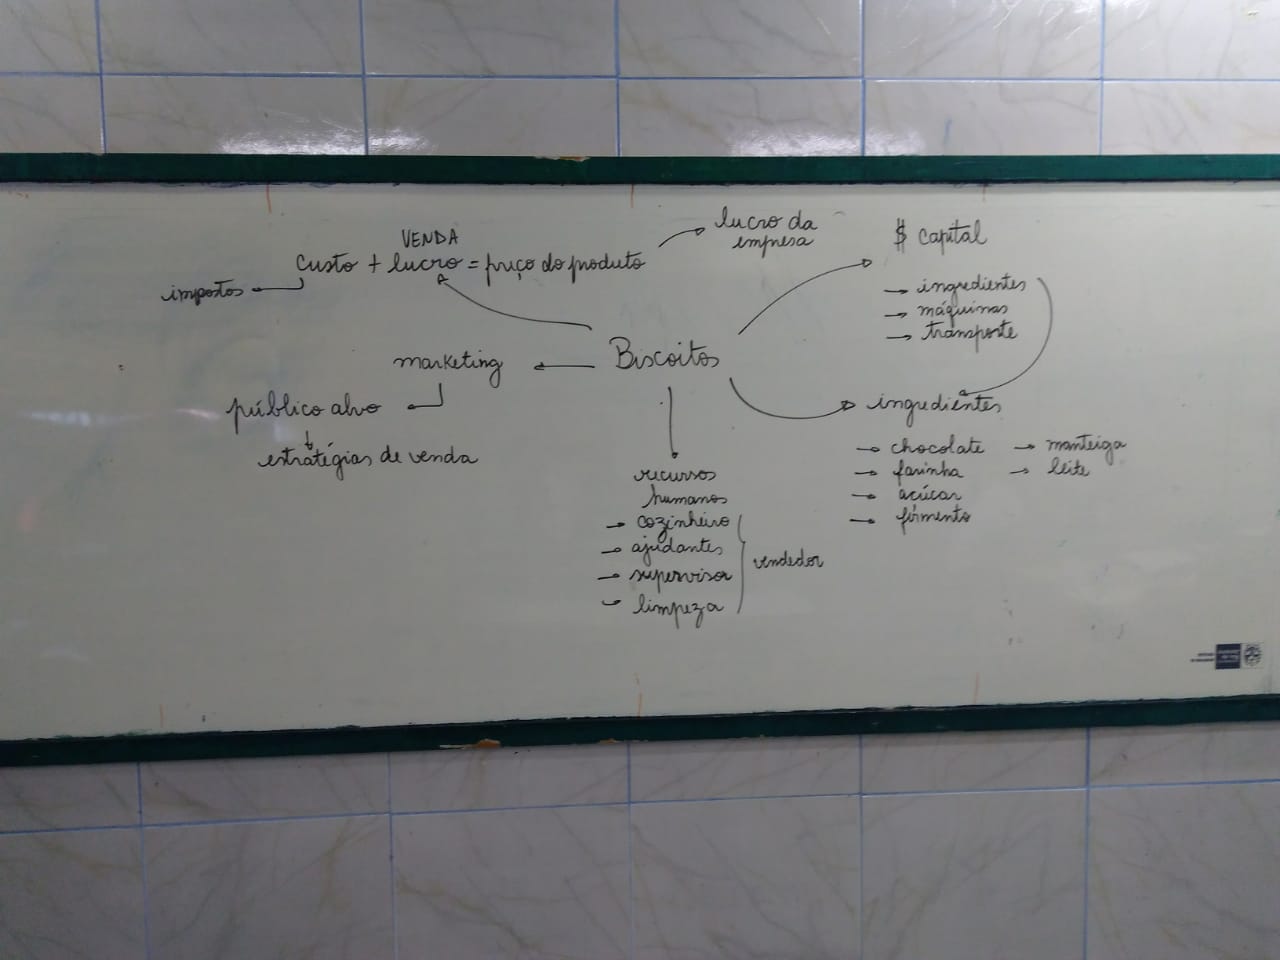 VENDA
custo + lucro = preço do produto
impostos
lucro da
empresa
$ capital
→ ingredientes
→ máquinas
→ transporte
Biscoitos
marketing
público alvo
estratégias de venda
recursos
humanos
→ cozinheiro
→ ajudantes
→ supervisor
→ limpeza
vendedor
ingredientes
→ chocolate → manteiga
→ farinha → leite
→ açúcar
→ fermento